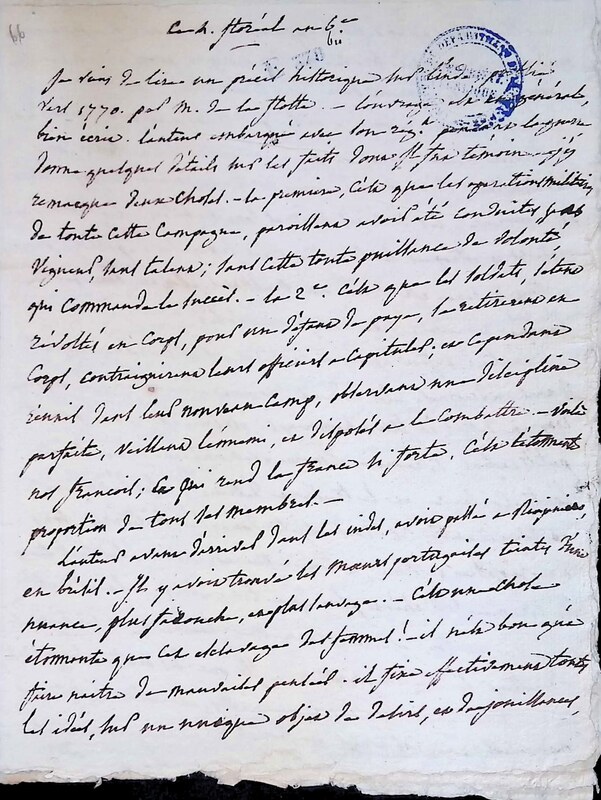 66
Ce 4. floréal an 6.e
Je viens de lire un précis historique sur l'inde, publié
vers 1770. par M. de la flotte. - L'ouvrage est en général,
bien écrit. L'auteur embarqué avec son reg.t pendant la guerre
donne quelques détails sur les faits dont il fut témoin. - j'y
remarque deux choses. - la première, c'est que les opérations militaires
de toute cette Campagne, paroissent avoir été conduites sans
vigueur, sans talens; sans cette toute puissance de volonté,
qui commande le succès. - la 2.e c'est que les soldats, s'étant
révoltés en Corps, pour un défaut de paye, se retirèrent en
Corps, contraignirent leurs officiers a capituler; et cependant
réunis dans leur nouveau camp, observant une discipline
parfaite, veillant l'ennemi, et disposés a le combattre. - Voilà
nos françois; ce qui rend la france si forte, c'est l'étonnante
proportion de tous ses membres. -
L'auteur avant d'arriver dans les indes, avoit passé a Riojaneiro,
en brésil. - Il y avoit trouvé les Mœurs portugaises teintes d'une
nuance, plus farouche, et plus sauvage. - C'est une chose
étonnante que cet esclavage des femmes! - il n'est bon qu'à
faire naître de mauvaises pensées. il fixe effectivement toutes
les idées, sur un unique objet de desirs, et de jouissances,